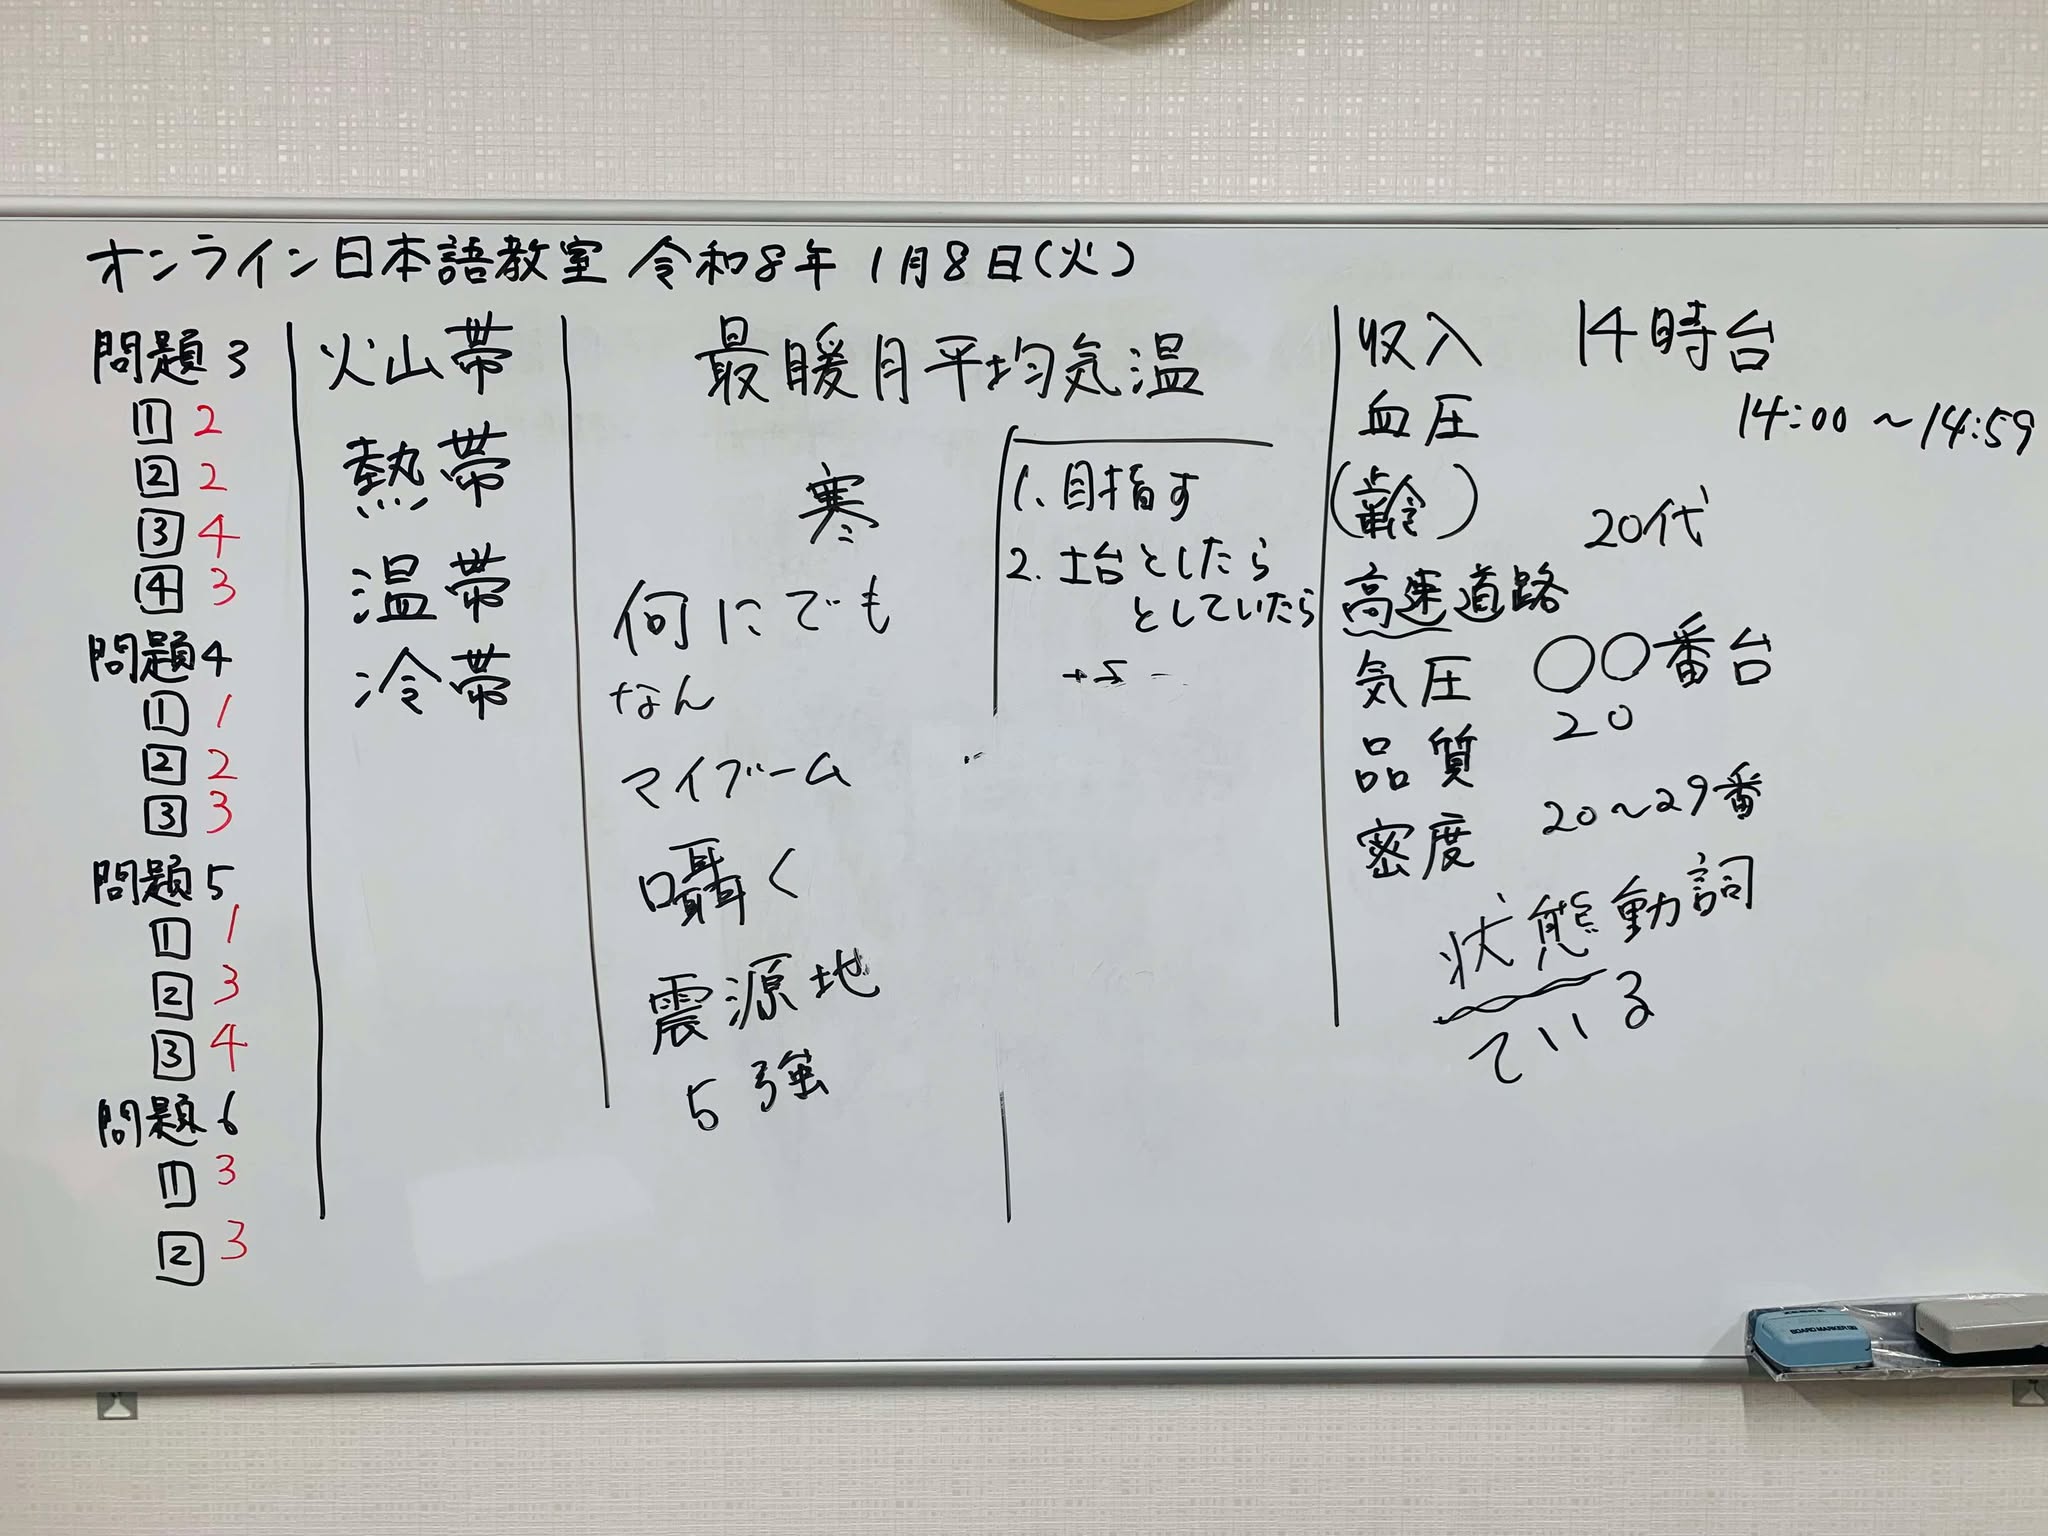 オンライン日本語教室 令和8年 1月8日(火)
問題3
1 2
2 2
3 4
4 3
問題4
1 1
2 2
3 3
問題5
1 1
2 3
3 4
問題6
1 3
2 3
火山帯
熱帯
温帯
冷帯
最暖月平均気温
寒
何にでも
なん
マイブーム
囁く
震源地
5強
1. 目指す
2. 土台としたら
としていたら
収入
血圧
(齢)
高速道路
気圧
品質
密度
14時台
14:00〜14:59
20代
〇〇番台
20
20〜29番
状態動詞
ている
BOARD MARKER